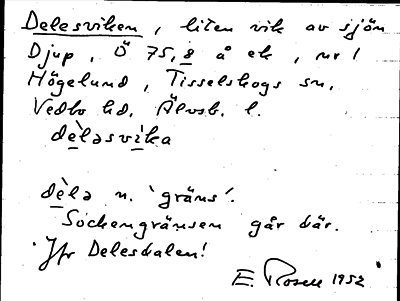 Delesviken, liten vik av sjön
Djup, Ö 75,8 å ek, nr 1
Högelund, Tisselskogs sn,
Vedbo hd. Älvsb. l.
dèləsvika
dèlə n. 'gräns'.
Sockengränsen går där.
Jfr Delesdalen!
E. Rosell 1952